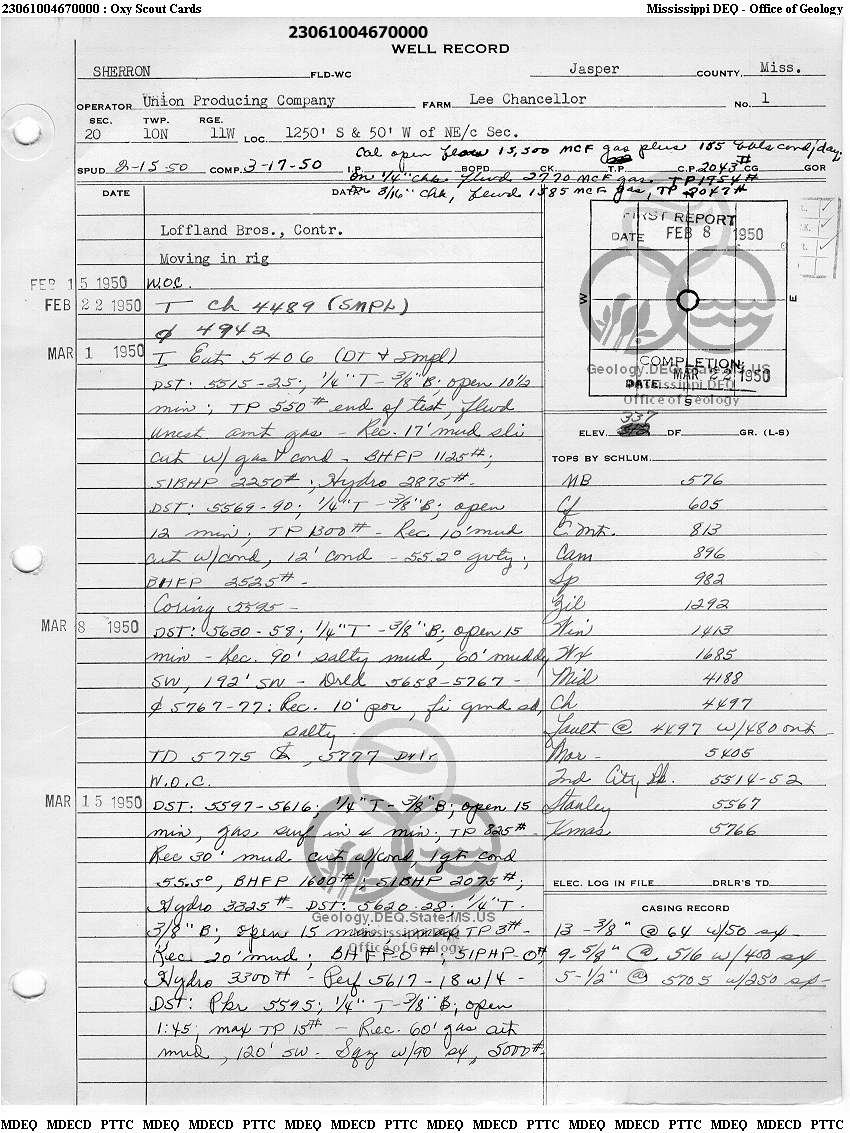 23061004670000 : Oxy Scout Cards
Mississippi DEQ - Office of Geology
23061004670000
WELL RECORD
SHERRON FLD-WC Jasper COUNTY, Miss.
OPERATOR Union Producing Company FARM Lee Chancellor NO. 1
SEC. TWP. RGE.
20 10N 11W LOC. 1250' S & 50' W of NE/c Sec.
Cal open flow 15,500 MCF gas plus 185 bbls cond/day
SPUD 2-15-50 COMP. 3-17-50 I.P. BOPD CK. T.P. C.P. 2043# CG GOR
On 1/4" chk flwd 2770 MCF gas. TP 1954#
DATE DATA On 3/16" Chk, flwd 1585 MCF gas, TP 2047#
Loffland Bros., Contr.
Moving in rig
FEB 15 1950 W.O.C.
FEB 22 1950 T Ch 4489 (SMPL)
₵ 4942
MAR 1 1950 T Eut 5406 (DT & Smpl)
DST: 5515-25; 1/4"T-3/8"B; open 10 1/2
min; TP 550# end of test, flwd
unest amt gas - Rec. 17' mud sli
cut w/ gas & cond - BHFP 1125#;
SIBHP 2250#; Hydro 2875#-
DST: 5569-90; 1/4"T-3/8"B; open
12 min; TP 1300# - Rec 10' mud
cut w/cond, 12' cond - 55.2° gvty;
BHFP 2525# -
Coring 5595 -
MAR 8 1950 DST: 5630-58; 1/4"T-3/8"B; open 15
min - Rec. 90' salty mud, 60' muddy
SW, 192' SW - Drld 5658-5767 -
₵ 5767-77: Rec. 10' por, fi grnd sd,
salty.
TD 5775 5777 Drlr
W.O.C.
MAR 15 1950 DST: 5597-5616; 1/4"T-3/8"B; open 15
min, gas surf in 4 min; TP 825# -
Rec 30' mud cut w/cond, 1 qt cond
55.5°, BHFP 1600#; SIBHP 2075#;
Hydro 3325# - DST: 5620-28; 1/4"T-
3/8"B; open 15 min; TP 3# -
Rec 20' mud; BHFP-0#; SIPHP-0#,
Hydro 3300# - Perf 5617-18 w/4 -
DST: Pkr 5595; 1/4"T-3/8"B; open
1:45; max TP 15# - Rec. 60' gas cut
mud, 120' SW - Sqz w/90 sx, 5000#-
FIRST REPORT
DATE FEB 8 1950
W E
COMPLETION:
DATE MAR 22 1950
S
ELEV. 337 DF GR. (L-S)
TOPS BY SCHLUM.
MB 576
Cf 605
C Mt. 813
Cam 896
Sp 982
Zil 1292
Win 1413
Wx 1685
Mid 4188
Ch 4497
Fault @ 4497 w/480 out
Mar - 5405
2nd City Sd. 5514-52
Stanley 5567
Xmas 5766
ELEC. LOG IN FILE DRLR'S TD
CASING RECORD
13-3/8" @ 64 w/50 sx
9-5/8" @ 516 w/400 sx
5-1/2" @ 5705 w/250 sx-
Geology.DEQ.State.MS.US
Mississippi DEQ
Office of Geology
Geology.DEQ.State.MS.US
Mississippi DEQ
Office of Geology
MDEQ MDECD PTTC MDEQ MDECD PTTC MDEQ MDECD PTTC MDEQ MDECD PTTC MDEQ MDECD PTTC MDEQ MDECD PTTC